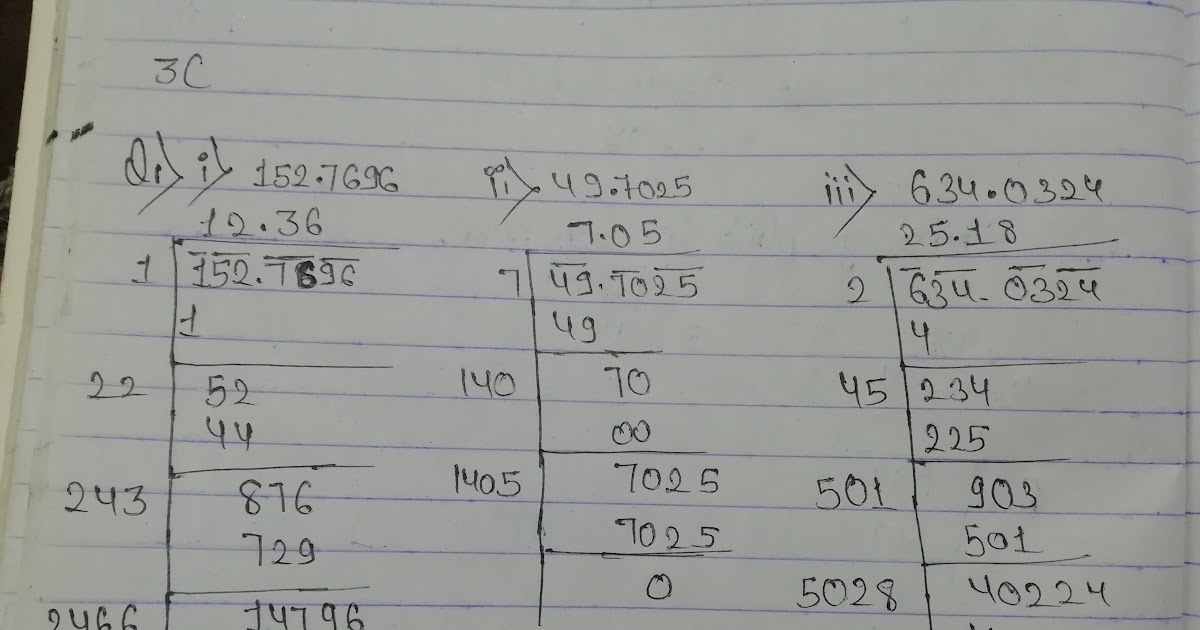 3C
Q1) i) 152.7696
12.36
1 152.7696
1
22 52
44
243 876
729
2466 14796
ii) 49.7025
7.05
7 49.7025
49
140 70
00
1405 7025
7025
0
iii) 634.0324
25.18
2 634.0324
4
45 234
225
501 903
501
5028 40224